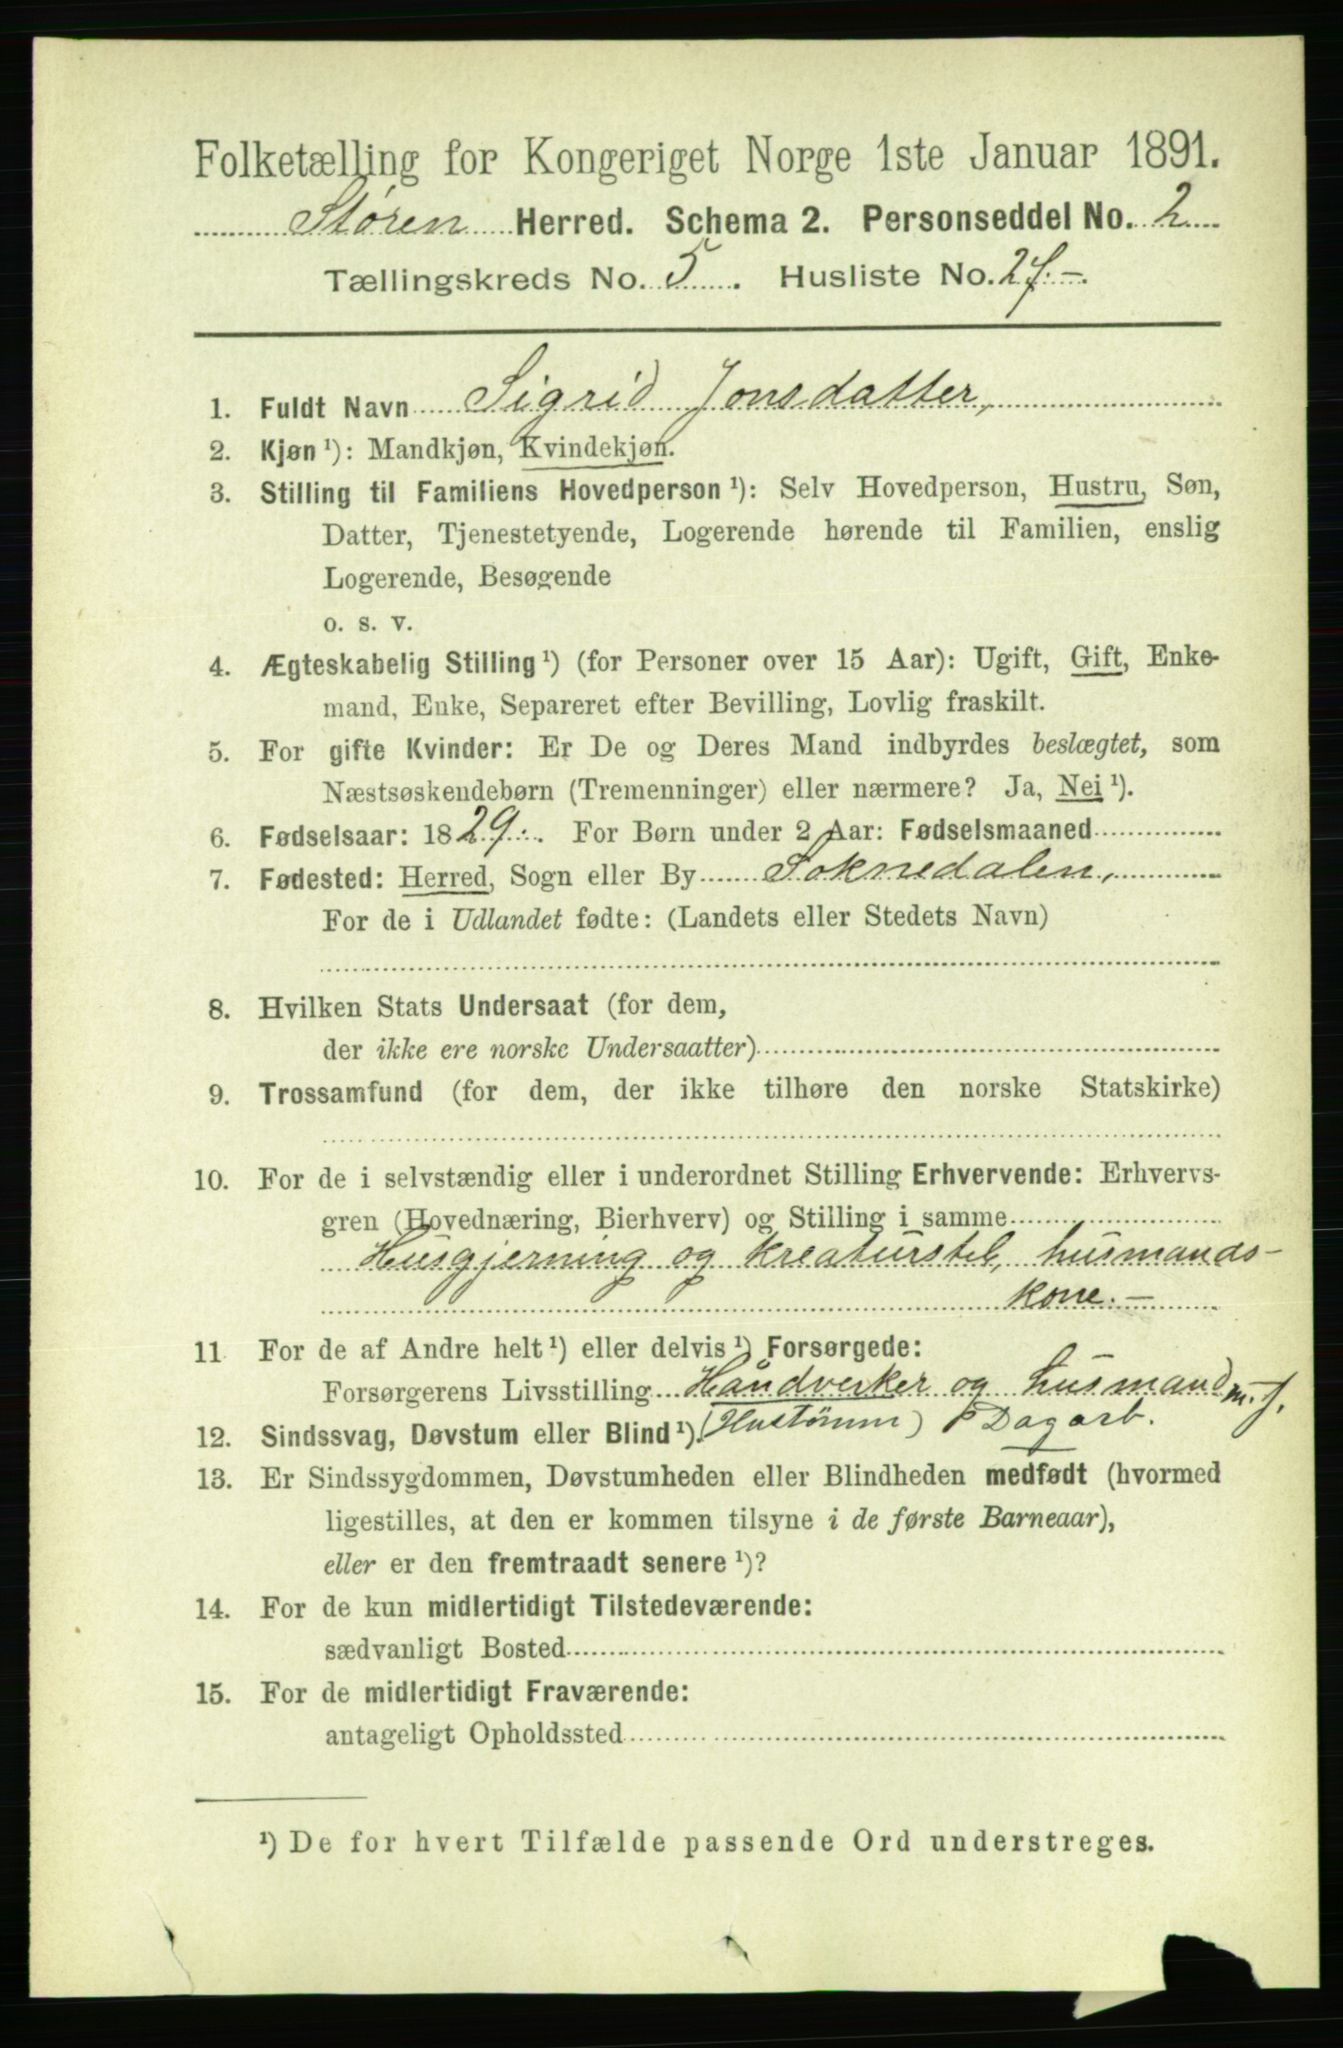 Folketælling for Kongeriget Norge 1ste Januar 1891.
Støren Herred. Schema 2. Personseddel No. 2
Tællingskreds No. 5. Husliste No. 27.-
1. Fuldt Navn Sigrid Jonsdatter,
2. Kjøn ¹): Mandkjøn, Kvindekjøn.
3. Stilling til Familiens Hovedperson ¹): Selv Hovedperson, Hustru, Søn,
Datter, Tjenestetyende, Logerende hørende til Familien, enslig
Logerende, Besøgende
o. s. v.
4. Ægteskabelig Stilling ¹) (for Personer over 15 Aar): Ugift, Gift, Enke-
mand, Enke, Separeret efter Bevilling, Lovlig fraskilt.
5. For gifte Kvinder: Er De og Deres Mand indbyrdes beslægtet, som
Næstsøskendebørn (Tremenninger) eller nærmere? Ja, Nei ¹).
6. Fødselsaar: 1829. For Børn under 2 Aar: Fødselsmaaned
7. Fødested: Herred, Sogn eller By Soknedalen,
For de i Udlandet fødte: (Landets eller Stedets Navn)
8. Hvilken Stats Undersaat (for dem,
der ikke ere norske Undersaatter)
9. Trossamfund (for dem, der ikke tilhøre den norske Statskirke)
10. For de i selvstændig eller i underordnet Stilling Erhvervende: Erhvervs-
gren (Hovednæring, Bierhverv) og Stilling i samme
Husgjerning og kreaturstel, husmands-
kone.-
11 For de af Andre helt ¹) eller delvis ¹) Forsørgede:
Forsørgerens Livsstilling Håndverker og husmand m. j.
12. Sindssvag, Døvstum eller Blind ¹). (Hustømm) Dagarb.
13. Er Sindssygdommen, Døvstumheden eller Blindheden medfødt (hvormed
ligestilles, at den er kommen tilsyne i de første Barneaar),
eller er den fremtraadt senere ¹)?
14. For de kun midlertidigt Tilstedeværende:
sædvanligt Bosted
15. For de midlertidigt Fraværende:
antageligt Opholdssted
¹) De for hvert Tilfælde passende Ord understreges.